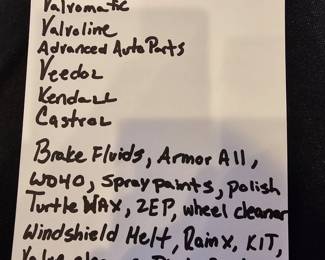 Valvomatic
Valvoline
Advanced Auto Parts
Veedol
Kendall
Castrol
Brake Fluids, Armor All,
WD40, Spray paints, polish
Turtle WAX, ZEP, wheel cleaner
Windshield Melt, Rain X, KIT,